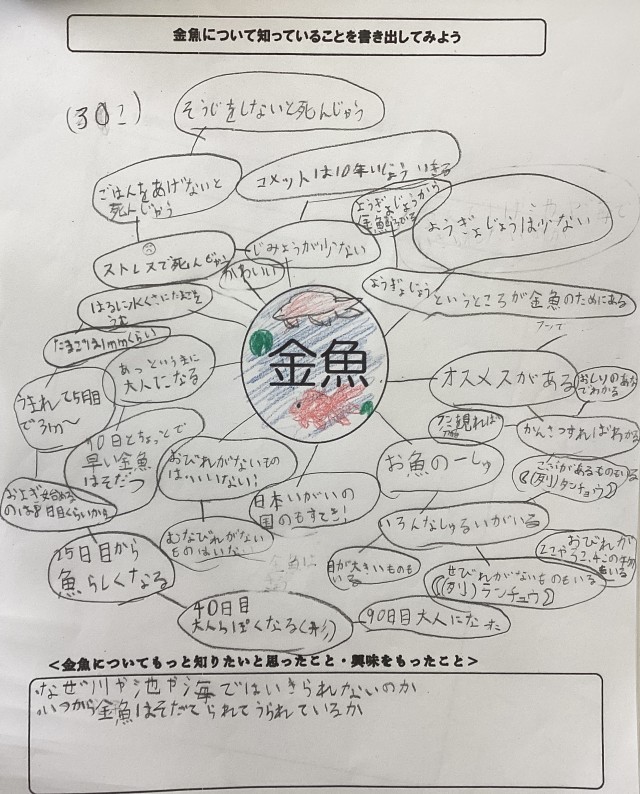 金魚について知っていることを書き出してみよう
(30こ)
そうじをしないと死んじゃう
ごはんをあげないと
死んじゃう
コメットは10年いじょういきる
ようぎょじょうから
金魚
ようぎょじょうは少ない
ストレスで死んじゃう
じみょうが少ない
かわいい
ようぎょじょうというところが金魚のためにある
はるに水くさにたまごを
うむ
たまごは1mmくらい
あっというまに
大人になる
金魚
オスメスがある
おしりのあな
でわかる
うまれて5日目
で
90日とちょっとで
早い金魚
はそだつ
おびれがないもの
はいない!
日本いがいの
国のもすてき!
お魚の一しゅ
観れば
かんさつすればわかる
こぶがあるものもいる
(例)タンチョウ
およぎ始める
のは8日目くらいから
むなびれがない
ものはいない
いろんなしゅるいがいる
おびれが
15日目から
魚らしくなる
目が大きいものも
いる
せびれがないものもいる
(例)ランチュウ
40日目
大人らぽくなる(形)
90日目大人になった
<金魚についてもっと知りたいと思ったこと・興味をもったこと>
なぜ川や池や海ではいきられないのか
いつから金魚はそだてられてうられているか